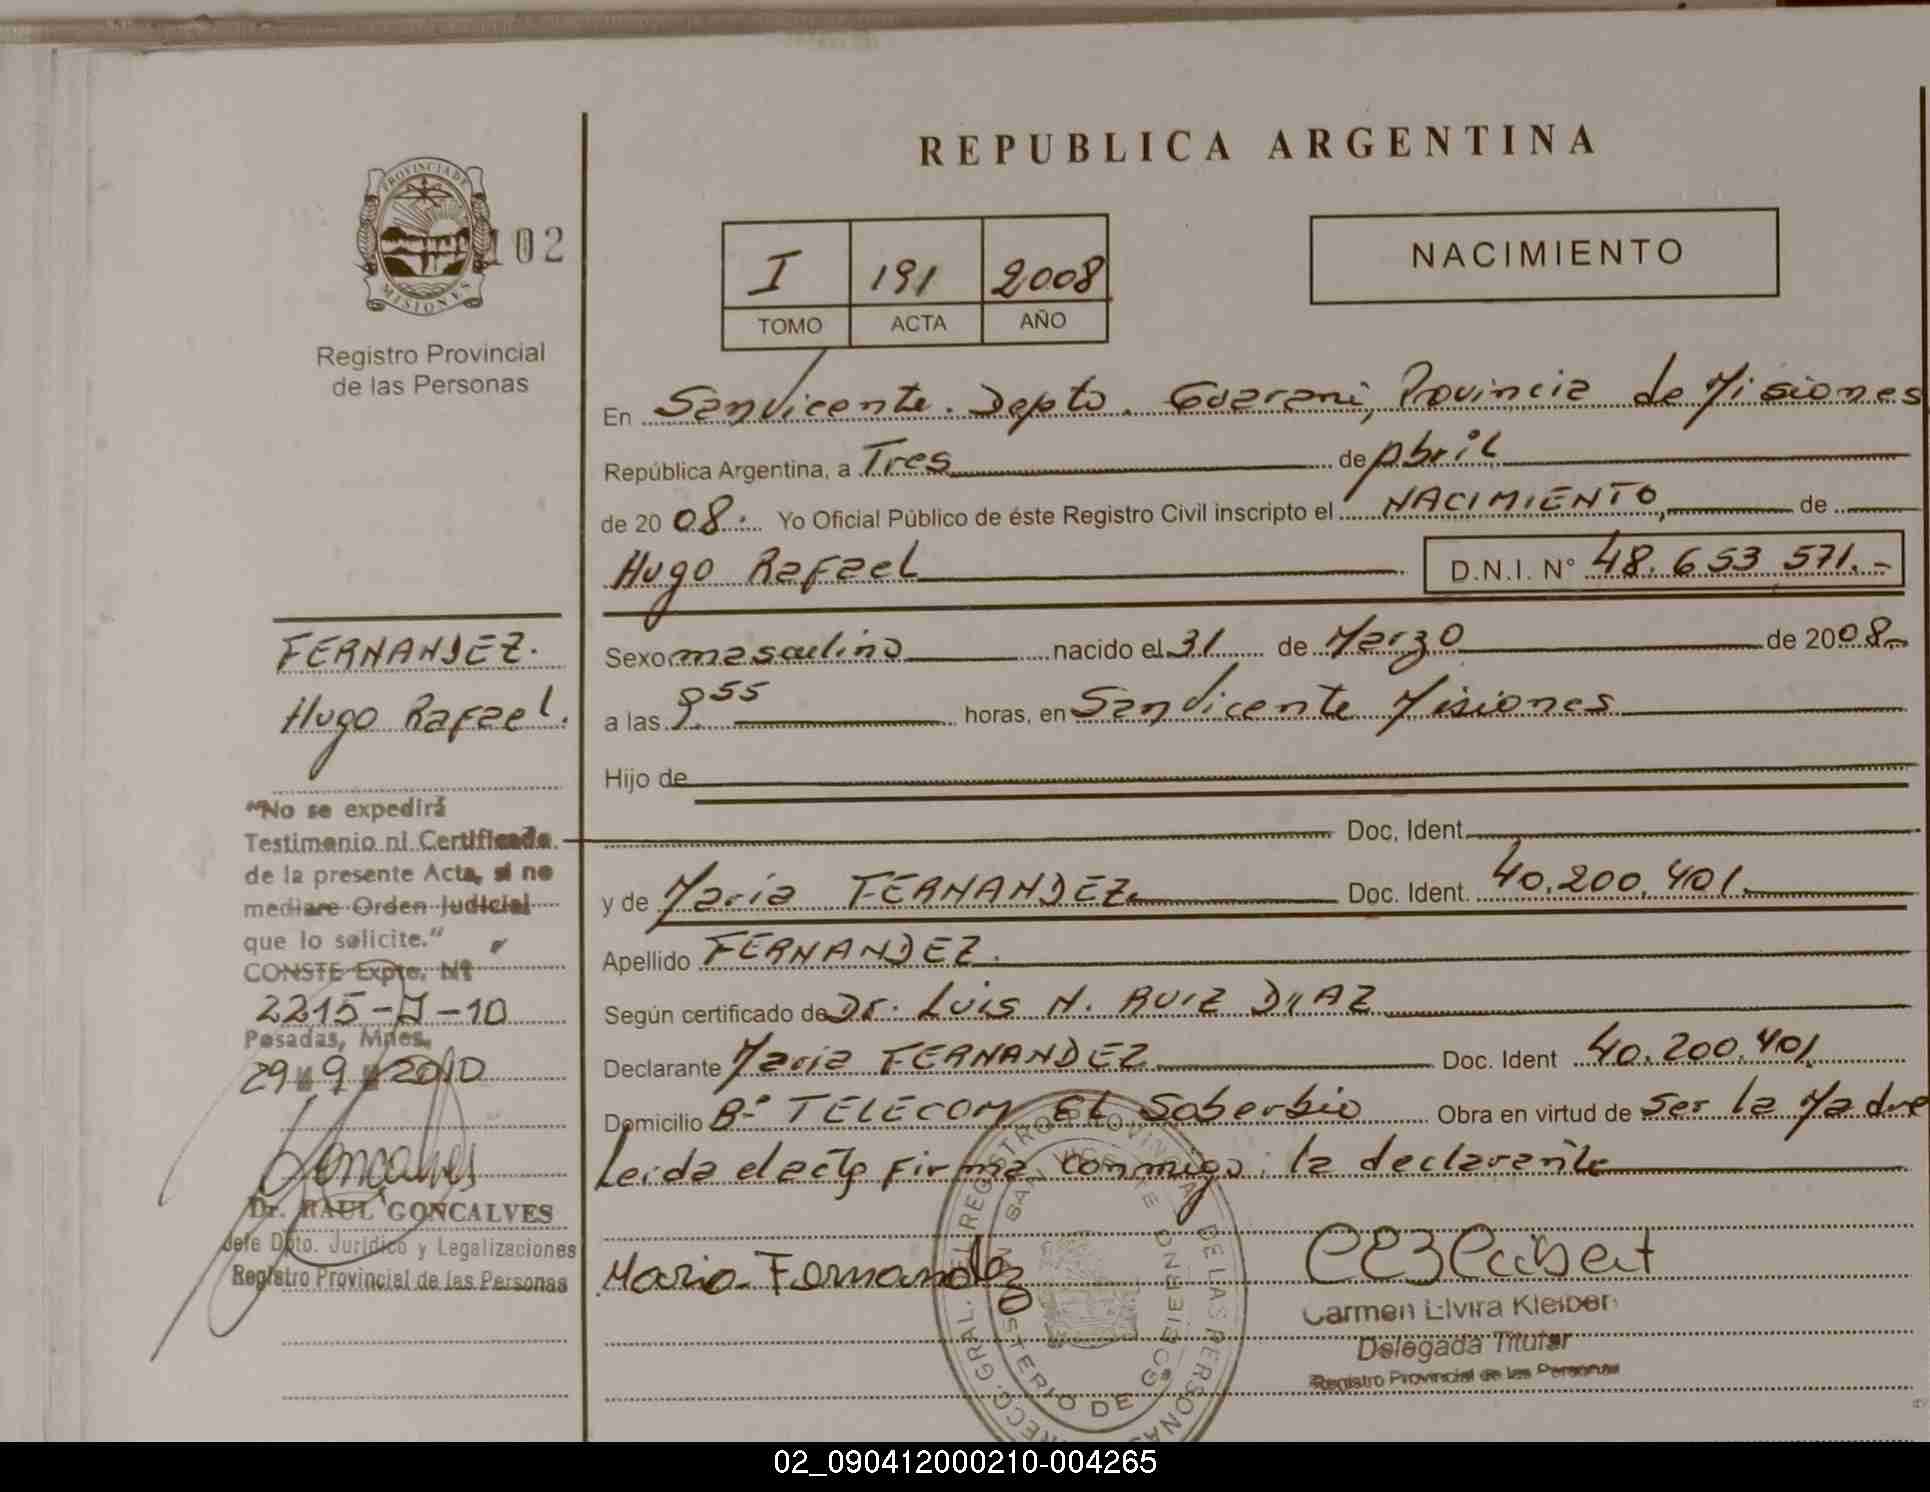 REPUBLICA ARGENTINA
PROVINCIA DE
MISIONES
102
Registro Provincial
de las Personas
I 191 2008
TOMO ACTA AÑO
NACIMIENTO
En San Vicente. Depto. Guarani, Provincia de Misiones
República Argentina, a Tres de Abril
de 2008. Yo Oficial Público de éste Registro Civil inscripto el NACIMIENTO, de
Hugo Rafael D.N.I. N° 48.653.571.-
FERNANDEZ.
Hugo Rafael.
Sexo masculino nacido el 31 de Marzo de 2008.-
a las 9.55 horas, en San Vicente Misiones
Hijo de
Doc. Ident.
y de Maria FERNANDEZ. Doc. Ident. 40.200.401.
Apellido FERNANDEZ.
Según certificado de Dr. Luis H. RUIZ DIAZ
Declarante Maria FERNANDEZ Doc. Ident 40.200.401.
Domicilio B° TELECOM El Soberbio Obra en virtud de ser la Madre
Leida el acta firma conmigo: la declarante
"No se expedirá
Testimonio ni Certificado
de la presente Acta, si no
mediare Orden Judicial
que lo solicite."
CONSTE Expte. Nº
2215-J-10
Posadas, Mnes,
29 9 2010
Goncalves
Dr. RAUL GONCALVES
Jefe Dpto. Jurídico y Legalizaciones
Registro Provincial de las Personas
Maria Fernandez
Carmen Elvira Kleiber
Delegada Titular
Registro Provincial de las Personas
REGISTRO PROVINCIAL DE LAS PERSONAS
SAN VICENTE
MINISTERIO DE GOBIERNO
02_090412000210-004265